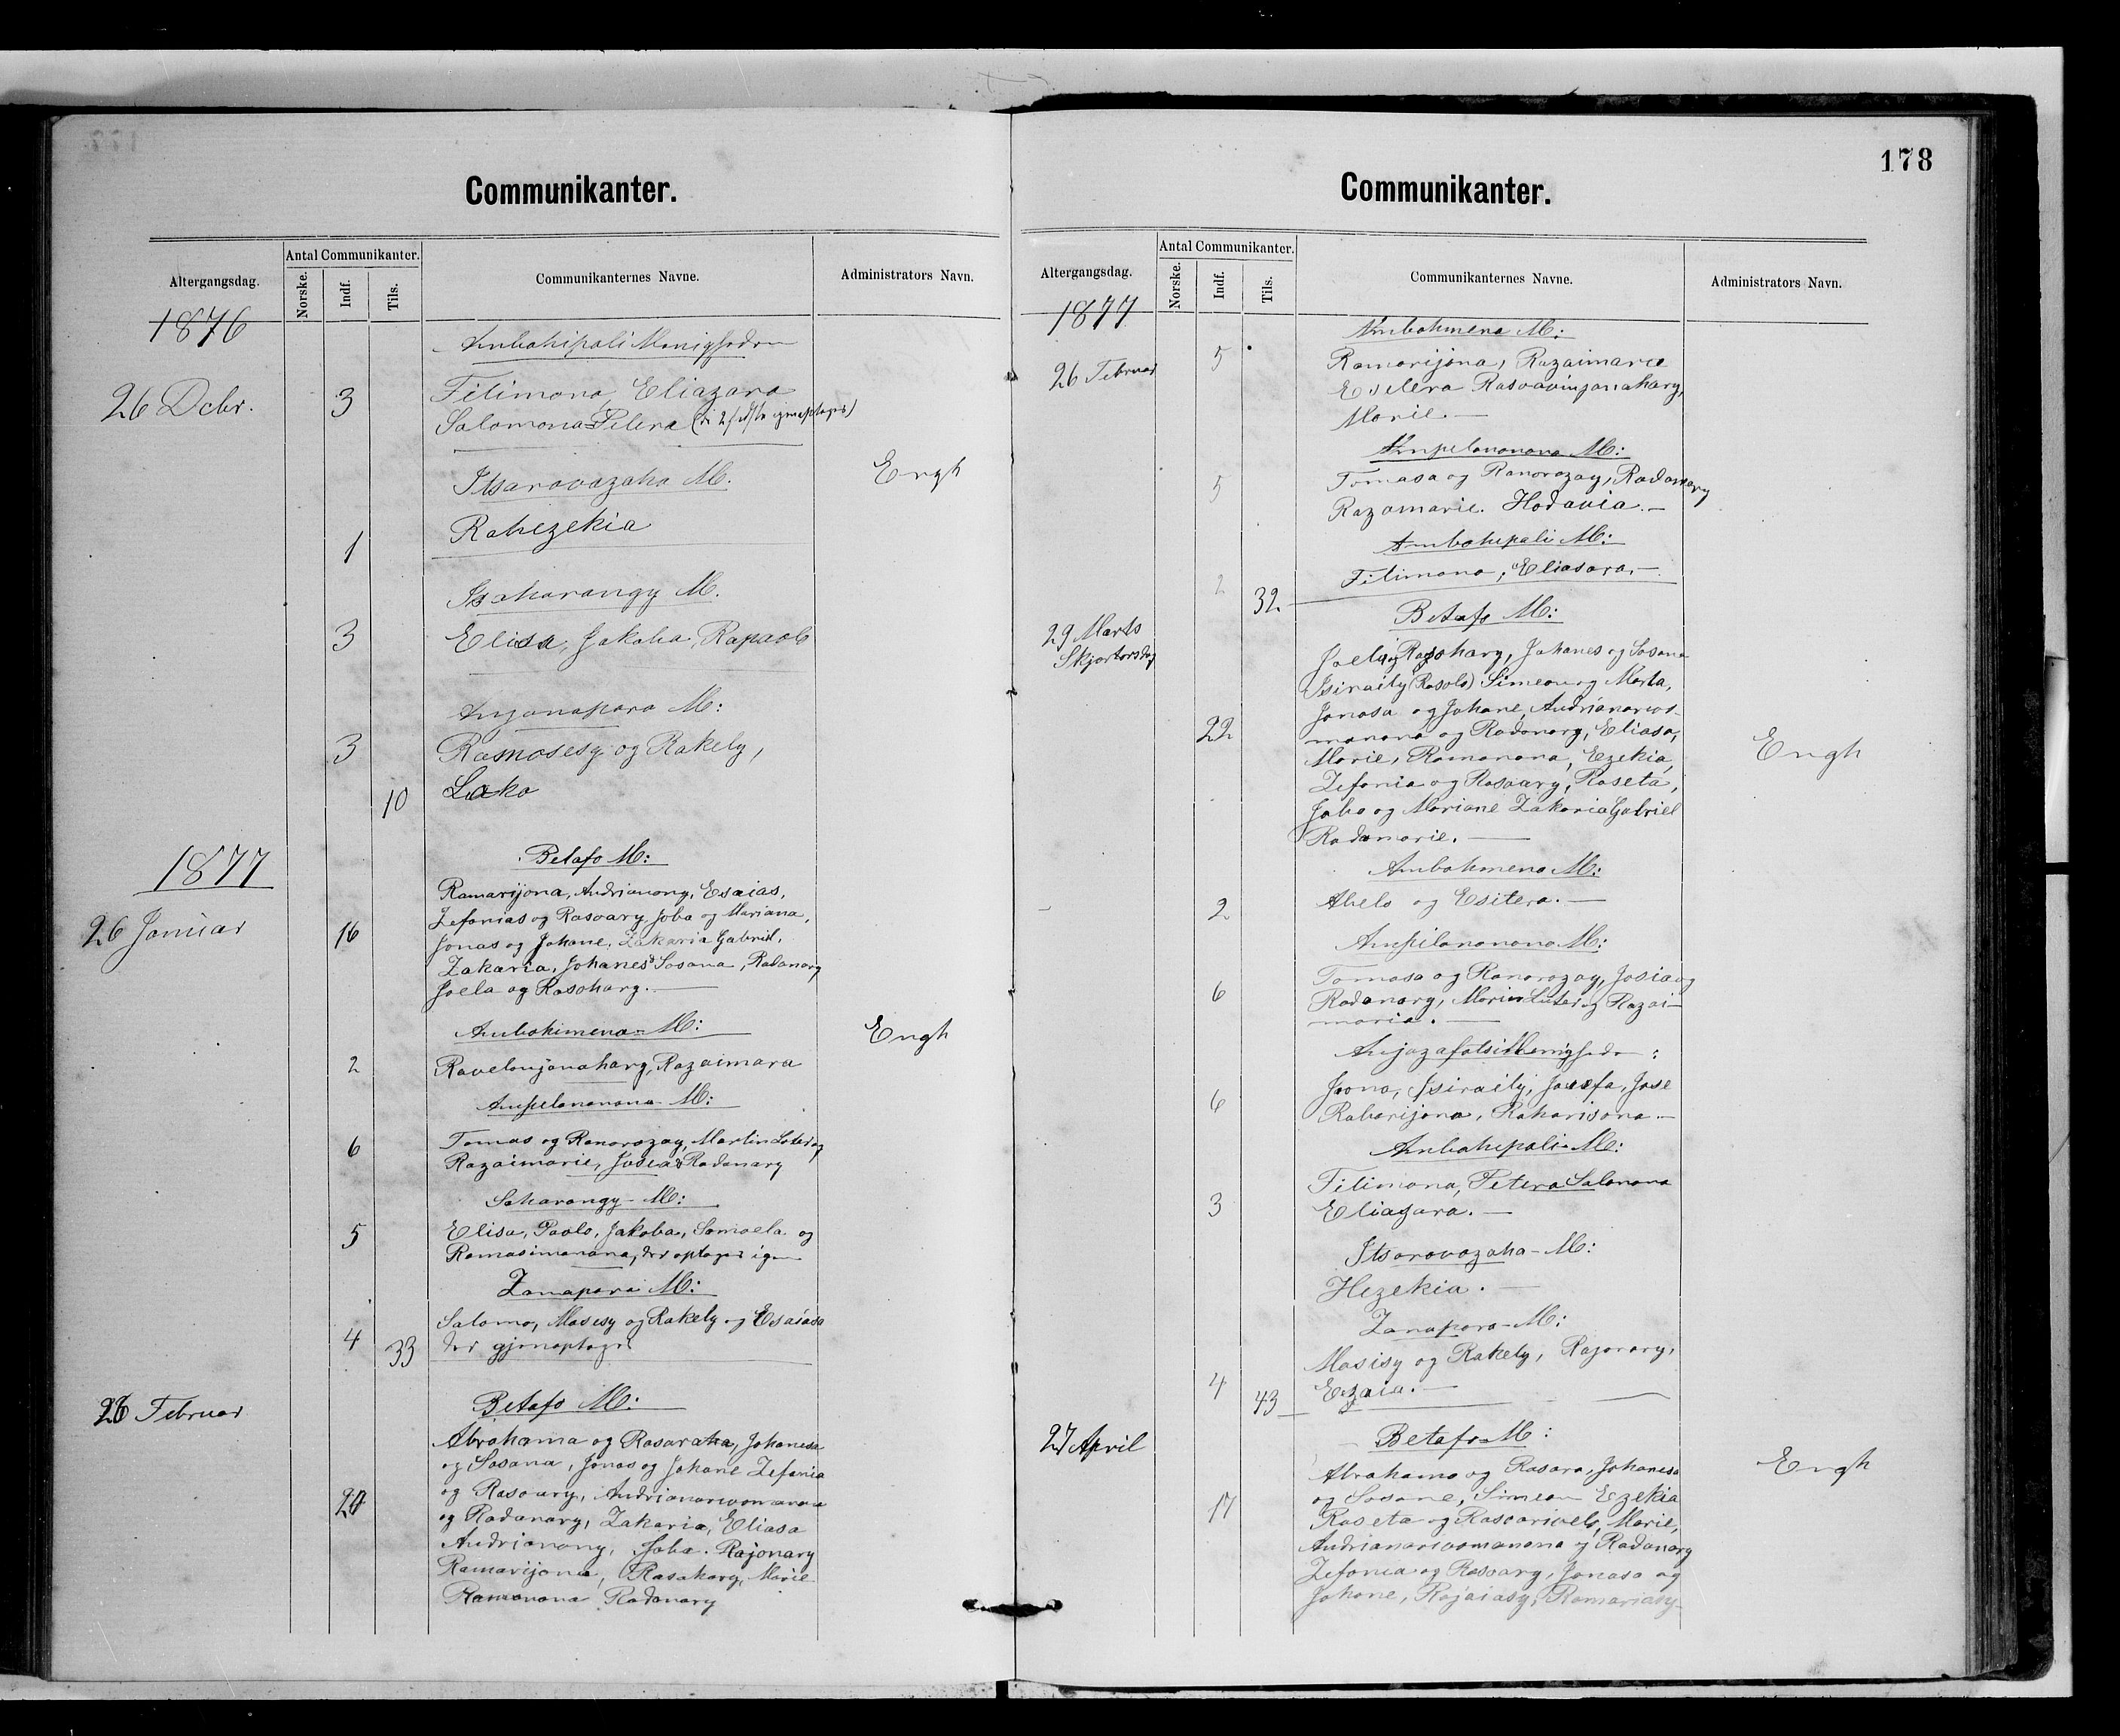 Communikanter.
Altergangsdag.
Antal Communikanter.
Norske.
Indf.
Tils.
Communikanternes Navne.
Administrators Navn.
1876
Ambohipoli Menighed
26 Decbr. 3 Filimona, Eliazara
Salomona Petera
Engh
Itsarovazaha M.
1 Rahezekia
Isaharangy M.
3 Elisa, Jakoba, Rapaolo
Anzanapara M:
3 Ramosesy og Rakely,
10 Lako
1877
Betafo M:
Ramarijona, Andrianony, Esaias,
26 Januar 16 Zefanias og Rasoary, Joba og Mariana,
Jonas og Johane, Zakaria Gabriel,
Zakaria, Johanes & Sosana, Radanary
Joela og Rasohary. —
Ambohimena M:
Engh
2 Ravelonjanahary, Razaimara
Ampilanonana M:
6 Tomas og Ranorozay, Martin Luter og
Razaimarie, Josea & Radanary
Saharangy M:
5 Elisa, Paolo, Jakoba, Samoela og
Ramasimanana, der optages igen
Zanapara M:
Salomo, Mosesy og Rakely og Esaiasa
4 33 der gjenoptages
26 Februar Betafo M:
Abrahama og Rasaraha, Johanesa
og Sosana, Jonas og Johane Zefania
20 og Rasoary, Andrianarivomanana
og Radanary, Zakaria, Eliasa
Andrianony, Joba. Rajonary
Ramarijona, Rasahary, Marie
Ramanana Radanary
178
Communikanter.
Altergangsdag.
Antal Communikanter.
Norske.
Indf.
Tils.
Communikanternes Navne.
Administrators Navn.
1877
Ambohmena M:
26 Februar 5 Ramarijona, Razaimarie
Esitera Rasoavinjanahary,
Marie. —
Ampilanonana M:
5 Tomasa og Ranorozay, Radanary
Razamarie. Hodavia. —
Ambohipoli M:
2 32 Filimona, Eliasara. —
Betafo M:
29 Marts
Skjærtorsdag
Joela og Rasohary, Johanes og Sosana
Isiraily (Rasolo) Simeon og Marta,
Jonasa og Johane, Andrianarivo-
22 manana og Radanary, Eliasa,
Engh
Marie, Ramanana, Ezekia,
Zefania og Rasoary, Raseta,
Joba og Mariane Zakaria Gabriel
Radamarie. —
Ambohmena M:
2 Abelo og Esitera. —
Ampilanonana M:
Tomasa og Ranorozay, Josia og
6 Radanary, Martin Luter og Razai-
maria. —
Anjazafotsi Menighed:
Joona, Isiraily, Josefa, Jose
6 Rabarijona, Raharisona —
Ambohipoli M:
Filimona, Petera Salomona
3 Eliazara. —
Itsarovazaha M:
Hezekia. —
Zanapara M:
Mosisy og Rakely, Rajorary,
4 43 Ezaia. —
27 April Betafo M:
Abrahama og Rasara, Johanesa
Engh
og Sosane, Simeon Ezekia
17 Raseta og Rasoarivelo, Marie,
Andrianarivomanana og Radanary
Zefania og Rasoary, Jonasa og
Johane, Rajaiasy, Ramariasy